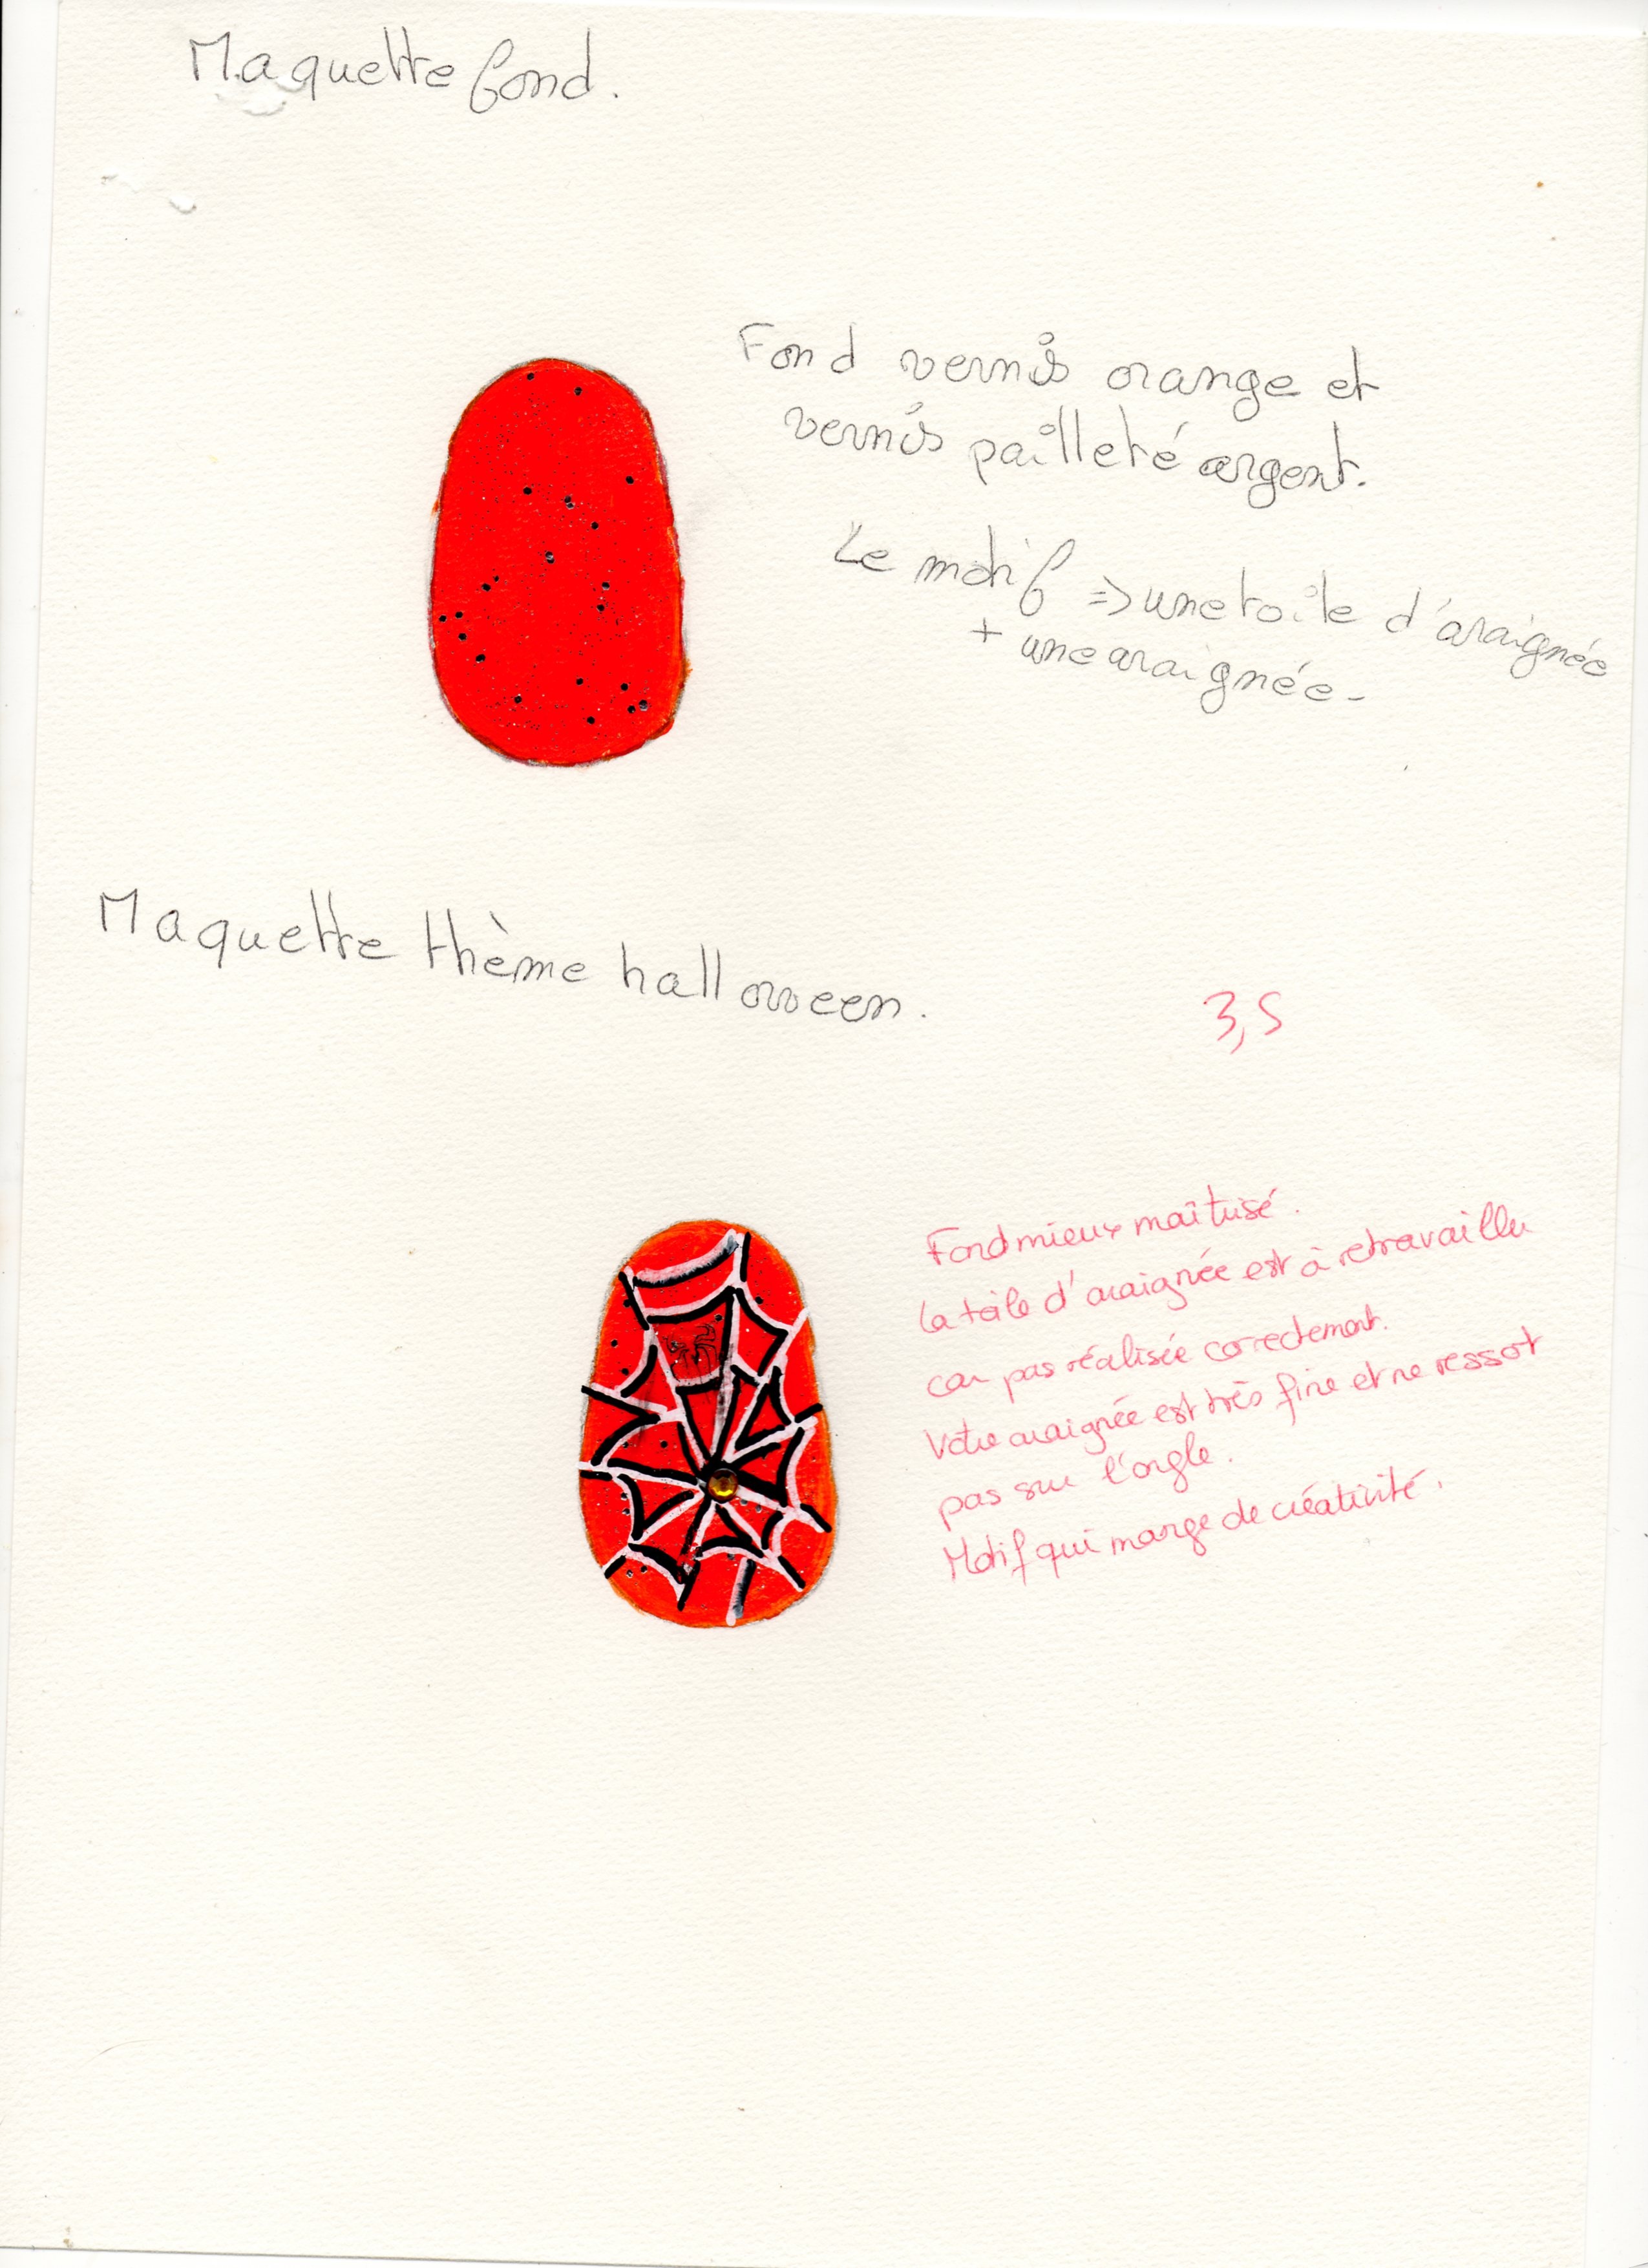 Maquette fond.
Fond vernis orange et
vernis pailleté argent.
Le motif => une toile d'araignée
+ une araignée -
Maquette thème halloween.
3,5
Fond mieux maîtrisé.
La toile d'araignée est à retravailler
car pas réalisée correctement.
Votre araignée est très fine et ne ressort
pas sur l'ongle.
Motif qui manque de créativité.